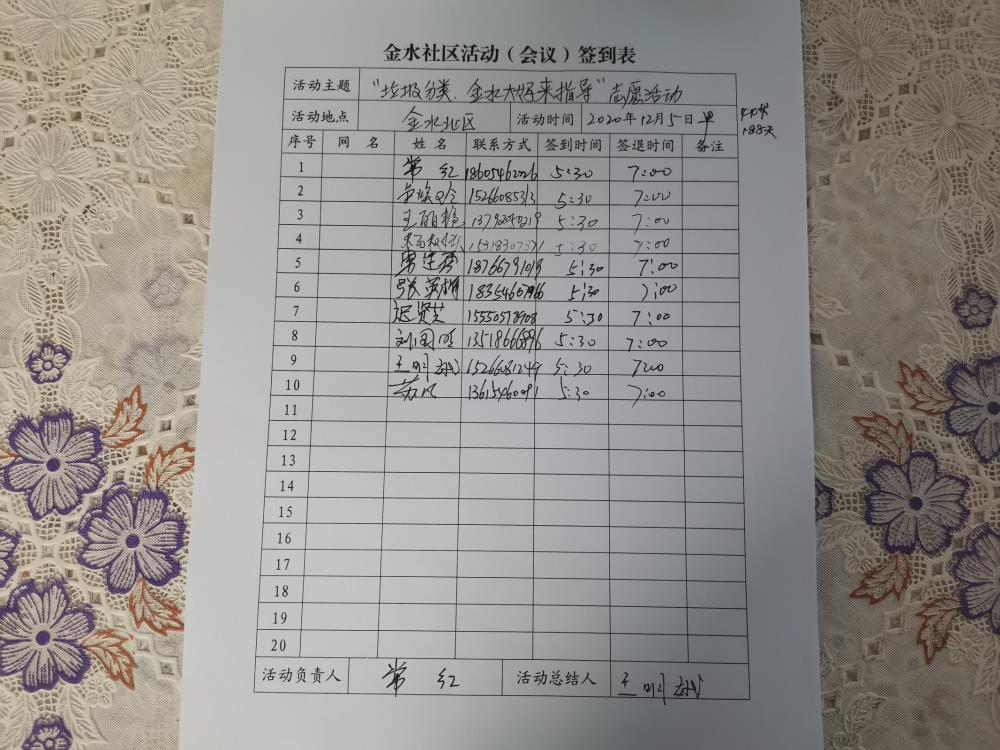 金水社区活动（会议）签到表
活动主题 “垃圾分类、金水大妈来指导”志愿活动
活动地点 金水北区 活动时间 2020年12月5日
188天
序号 网 名 姓 名 联系方式 签到时间 签退时间 备注
1 常 红 18605462026 5:30 7:00
2 5:30 7:00
3 王丽 5:30 7:00
4 5:30 7:00
5 18766791019 5:30 7:00
6 张英 5:30 7:00
7 5:30 7:00
8 刘国明 5:30 7:00
9 王明 15266081249 5:30 7:00
10 13615460091 5:30 7:00
11
12
13
14
15
16
17
18
19
20
活动负责人 常 红 活动总结人 王明